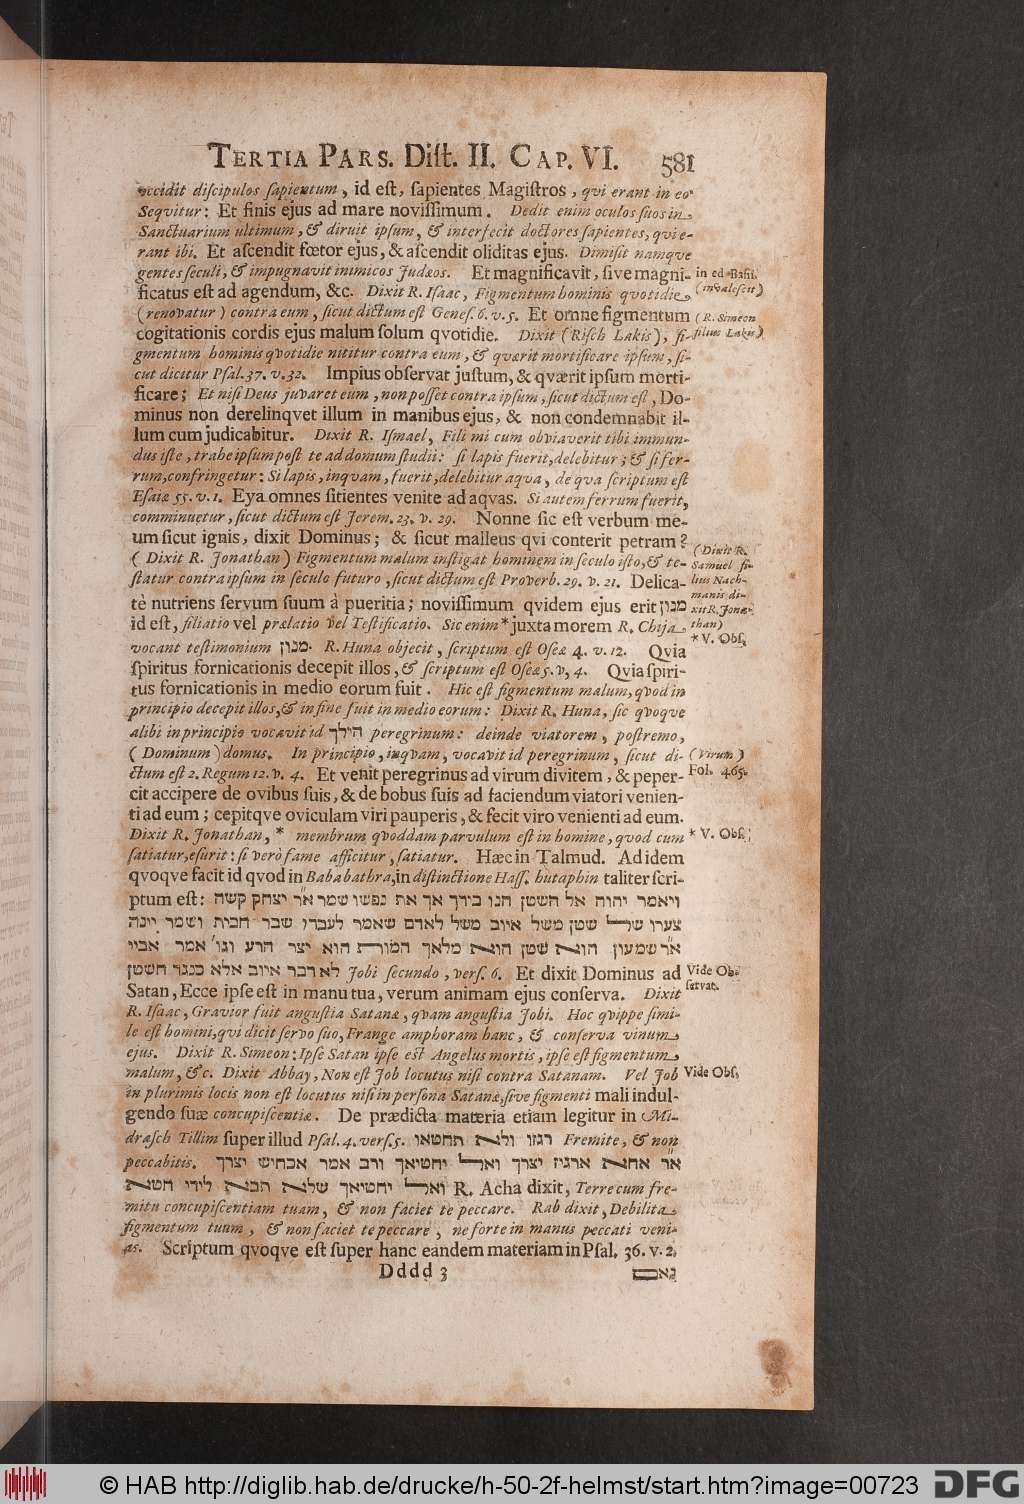 TERTIA PARS. Diſt. II. CAP. VI. 581
occidit diſcipulos ſapientum, id eſt, ſapientes Magiſtros, qvi erant in eo.
Seqvitur: Et finis ejus ad mare noviſſimum. Dedit enim oculos ſuos in
Sanctuarium ultimum, & diruit ipſum, & interfecit doctores ſapientes, qvi e-
rant ibi. Et aſcendit fœtor ejus, & aſcendit oliditas ejus. Dimiſit namqve
gentes ſeculi, & impugnavit inimicos Judæos. Et magnificavit, ſive magni-
ficatus eſt ad agendum, &c. Dixit R. Iſaac, Figmentum hominis qvotidie
(renovatur) contra eum, ſicut dictum eſt Geneſ. 6. v. 5. Et omne figmentum
cogitationis cordis ejus malum ſolum qvotidie. Dixit (Riſch Lakis), fi-
gmentum hominis qvotidie nititur contra eum, & qværit mortificare ipſum, ſi-
cut dicitur Pſal. 37. v. 32. Impius obſervat juſtum, & qværit ipſum morti-
ficare; Et niſi Deus juvaret eum, non poſſet contra ipſum, ſicut dictum eſt, Do-
minus non derelinqvet illum in manibus ejus, & non condemnabit il-
lum cum judicabitur. Dixit R. Iſmael, Fili mi cum obviaverit tibi immun-
dus iſte, trahe ipſum poſt te ad domum ſtudii: ſi lapis fuerit, delebitur; & ſi fer-
rum, confringetur: Si lapis, inqvam, fuerit, delebitur aqva, de qva ſcriptum eſt
Eſaiæ 55. v. 1. Eya omnes ſitientes venite ad aqvas. Si autem ferrum fuerit,
comminuetur, ſicut dictum eſt Jerem. 23. v. 29. Nonne ſic eſt verbum me-
um ſicut ignis, dixit Dominus; & ſicut malleus qvi conterit petram?
(Dixit R. Jonathan) Figmentum malum inſtigat hominem in ſeculo iſto, & te-
ſtatur contra ipſum in ſeculo futuro, ſicut dictum eſt Proverb. 29. v. 21. Delica-
tè nutriens ſervum ſuum à pueritia; noviſſimum qvidem ejus erit מנון
id eſt, filiatio vel prælatio vel Teſtificatio. Sic enim * juxta morem R. Chija
vocant teſtimonium מנון. R. Huna objecit, ſcriptum eſt Oſeæ 4. v. 12. Qvia
ſpiritus fornicationis decepit illos, & ſcriptum eſt Oſeæ 5. v. 4. Qvia ſpiri-
tus fornicationis in medio eorum fuit. Hic eſt figmentum malum, qvod in
principio decepit illos, & in fine fuit in medio eorum: Dixit R. Huna, ſic qvoqve
alibi in principio vocavit id הילך peregrinum: deinde viatorem, poſtremo,
(Dominum) domus. In principio, inqvam, vocavit id peregrinum, ſicut di-
ctum eſt 2. Regum 12. v. 4. Et venit peregrinus ad virum divitem, & peper-
cit accipere de ovibus ſuis, & de bobus ſuis ad faciendum viatori venien-
ti ad eum; cepitqve oviculam viri pauperis, & fecit viro venienti ad eum.
Dixit R. Jonathan, * membrum qvoddam parvulum eſt in homine, qvod cum
ſatiatur, eſurit: ſi verò fame afficitur, ſatiatur. Hæc in Talmud. Ad idem
qvoqve facit id qvod in Bababathra, in diſtinctione Haſſ. hutaphin taliter ſcri-
ptum eſt: ויאמר יהוה אל השטן הנו בידך אך את נפשו שמר א״ר יצחק קשה
צערו של שטן משל איוב משל לאדם שאמר לעבדו שבר חבית ושמר יינה
א״ר שמעון הוא שטן הוא מלאך המות הוא יצר הרע וגו׳ אמר אביי
לא דבר איוב אלא כנגד השטן Jobi ſecundo, verſ. 6. Et dixit Dominus ad
Satan, Ecce ipſe eſt in manu tua, verum animam ejus conſerva. Dixit
R. Iſaac, Gravior fuit anguſtia Satanæ, qvam anguſtia Jobi. Hoc qvippe ſimi-
le eſt homini, qvi dicit ſervo ſuo, Frange amphoram hanc, & conſerva vinum
ejus. Dixit R. Simeon: Ipſe Satan ipſe est Angelus mortis, ipſe eſt figmentum
malum, &c. Dixit Abbay, Non eſt Job locutus niſi contra Satanam. Vel Job
in plurimis locis non eſt locutus niſi in perſona Satanæ, ſive figmenti mali indul-
gendo ſuæ concupiſcentiæ. De prædicta materia etiam legitur in Mi-
draſch Tillim ſuper illud Pſal. 4. verſ. 5. רגזו ולא תחטאו Fremite, & non
peccabitis. א״ר אחא ארגיז יצרך ואל יחטיאך ורב אמר אכחיש יצרך
ואל יחטיאך שלא תבא לידי חטא R. Acha dixit, Terre cum fre-
mitu concupiſcentiam tuam, & non faciet te peccare. Rab dixit, Debilita
figmentum tuum, & non faciet te peccare, ne forte in manus peccati veni-
as. Scriptum qvoqve eſt ſuper hanc eandem materiam in Pſal. 36. v. 2.
Dddd 3 נאם
in ed. Baſil.
(invaleſcit)
(R. Simeon
filius Lakis)
(Dixit R.
Samuel fi-
lius Nach-
manis di-
xit R. Jona-
than)
* V. Obſ.
(Virum)
Fol. 465.
* V. Obſ.
Vide Ob-
ſervat.
Vide Obſ.
© HAB http://diglib.hab.de/drucke/h-50-2f-helmst/start.htm?image=00723 DFG